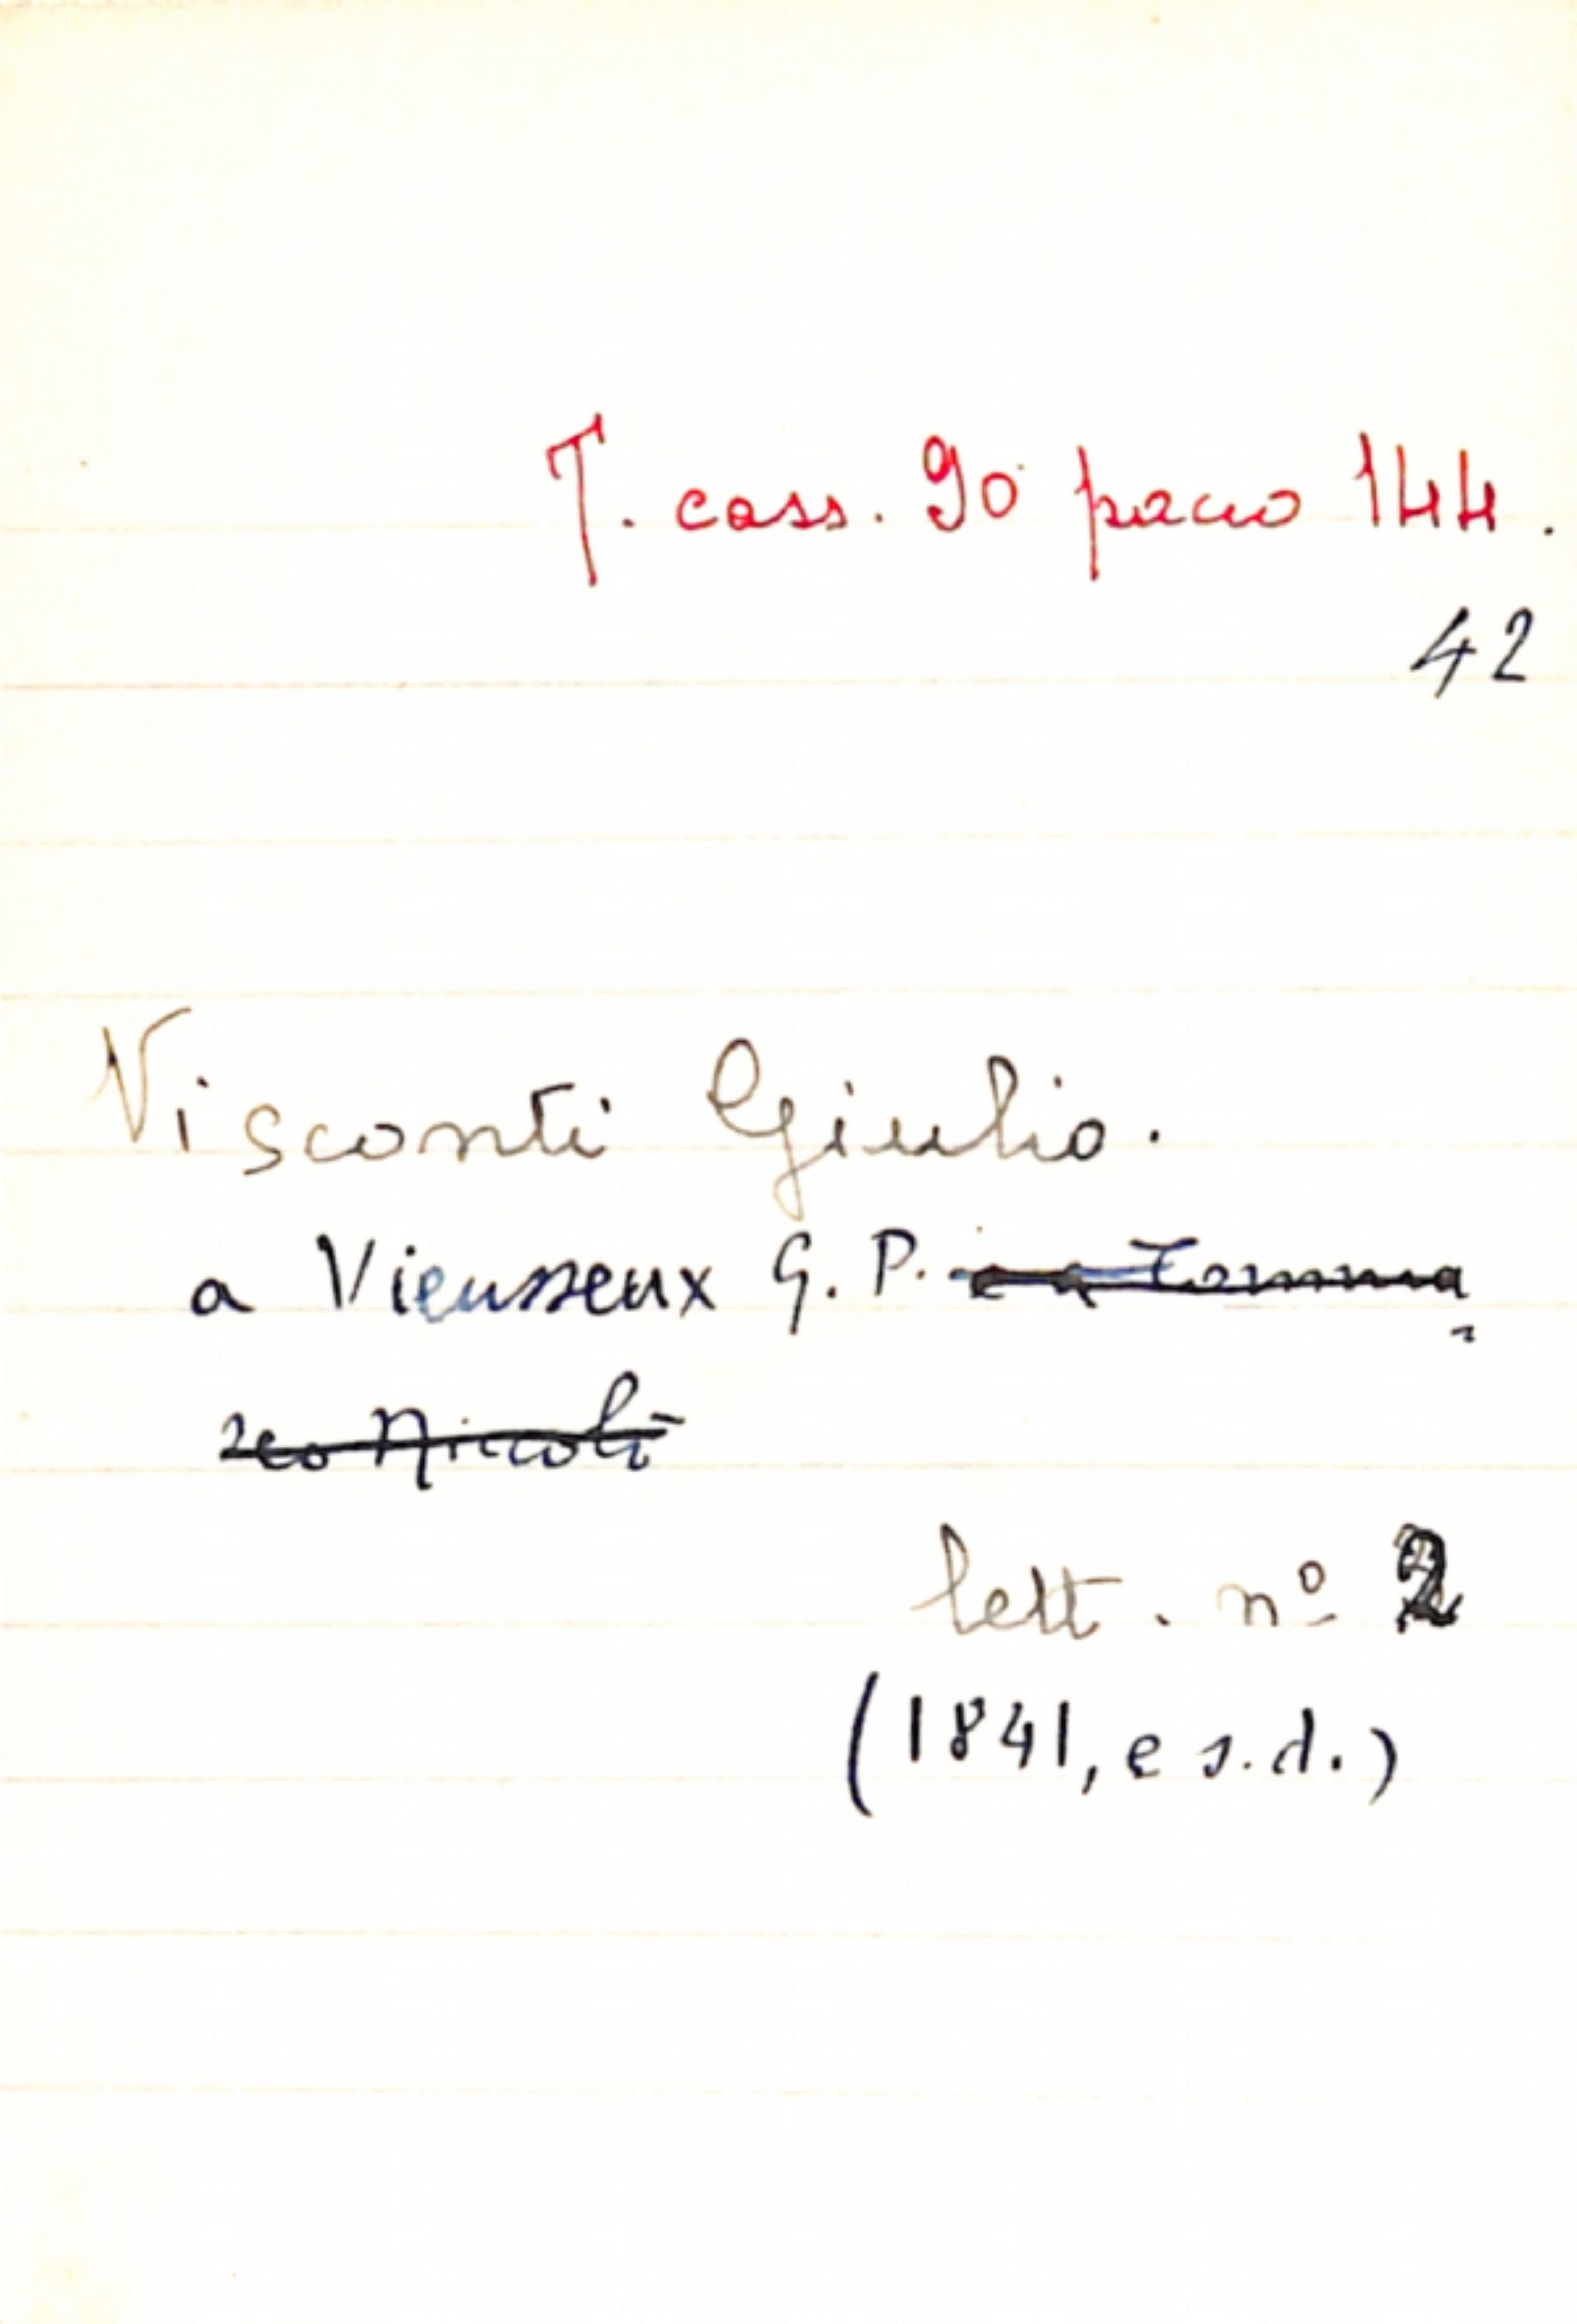 T. cass. 90 pacco 144.
42
Visconti Giulio.
a Vieusseux G. P. e a Tomma
seo Niccolò
lett. nº 2
(1841, e s.d.)